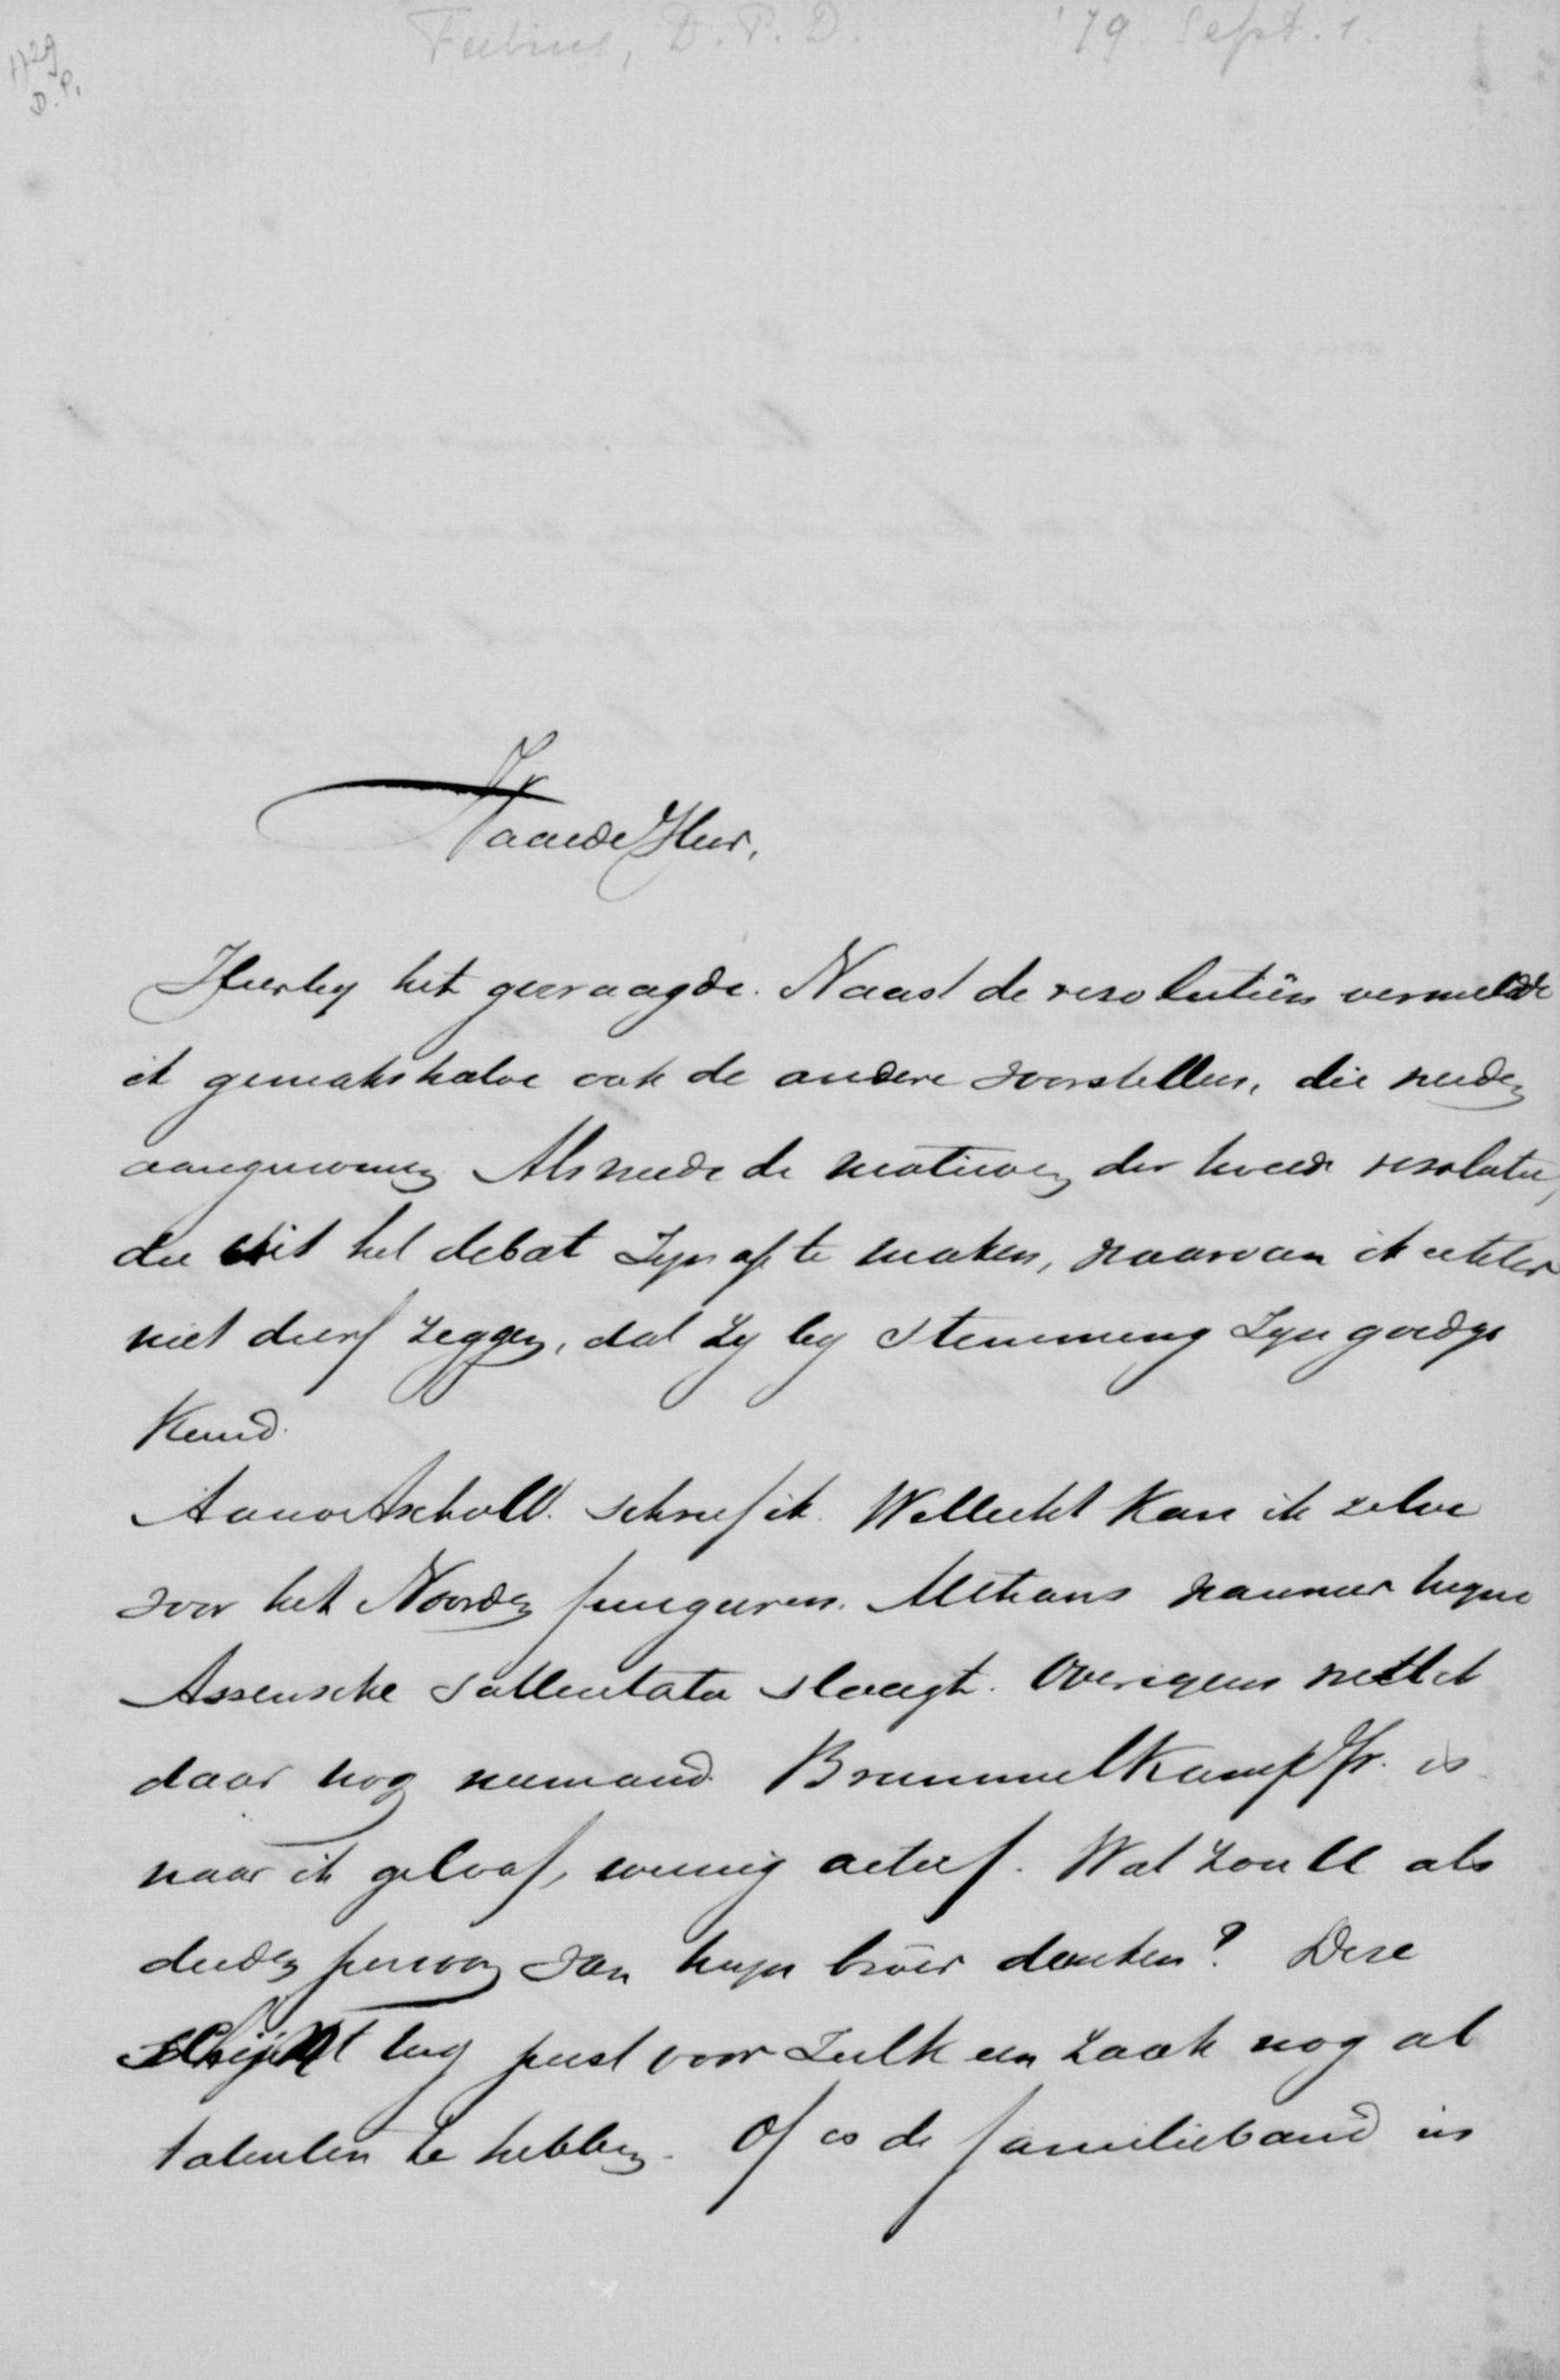 Fabius, D. P. D. '79. Sept. 1.
D. P.
Waarde Heer,
Hierby het gevraagde. Naast de resolutiën vermeldde
ik gemakshalve ook de andere voorstellen, die werden
aangenomen. Alsmede de motieven der tweede resolutie,
die uit het debat zyn op te maken, waarvan ik echter
niet durf zeggen, dat zy by stemming zyn goedge
keurd.
Aan schreef ik. Wellicht kan ik zelve
voor het Noorden fungeeren. Althans wanneer myne
Assensche sollicitatie slaagt. Overigens weet ik
daar nog niemand. Brummelkamp Jr. is
naar ik geloof, weinig actief. Wat zou U als
derden persoon van myn broer denken? Deze
schijnt my juist voor zulk een zaak nog al
talenten te hebben. Of is de familieband in